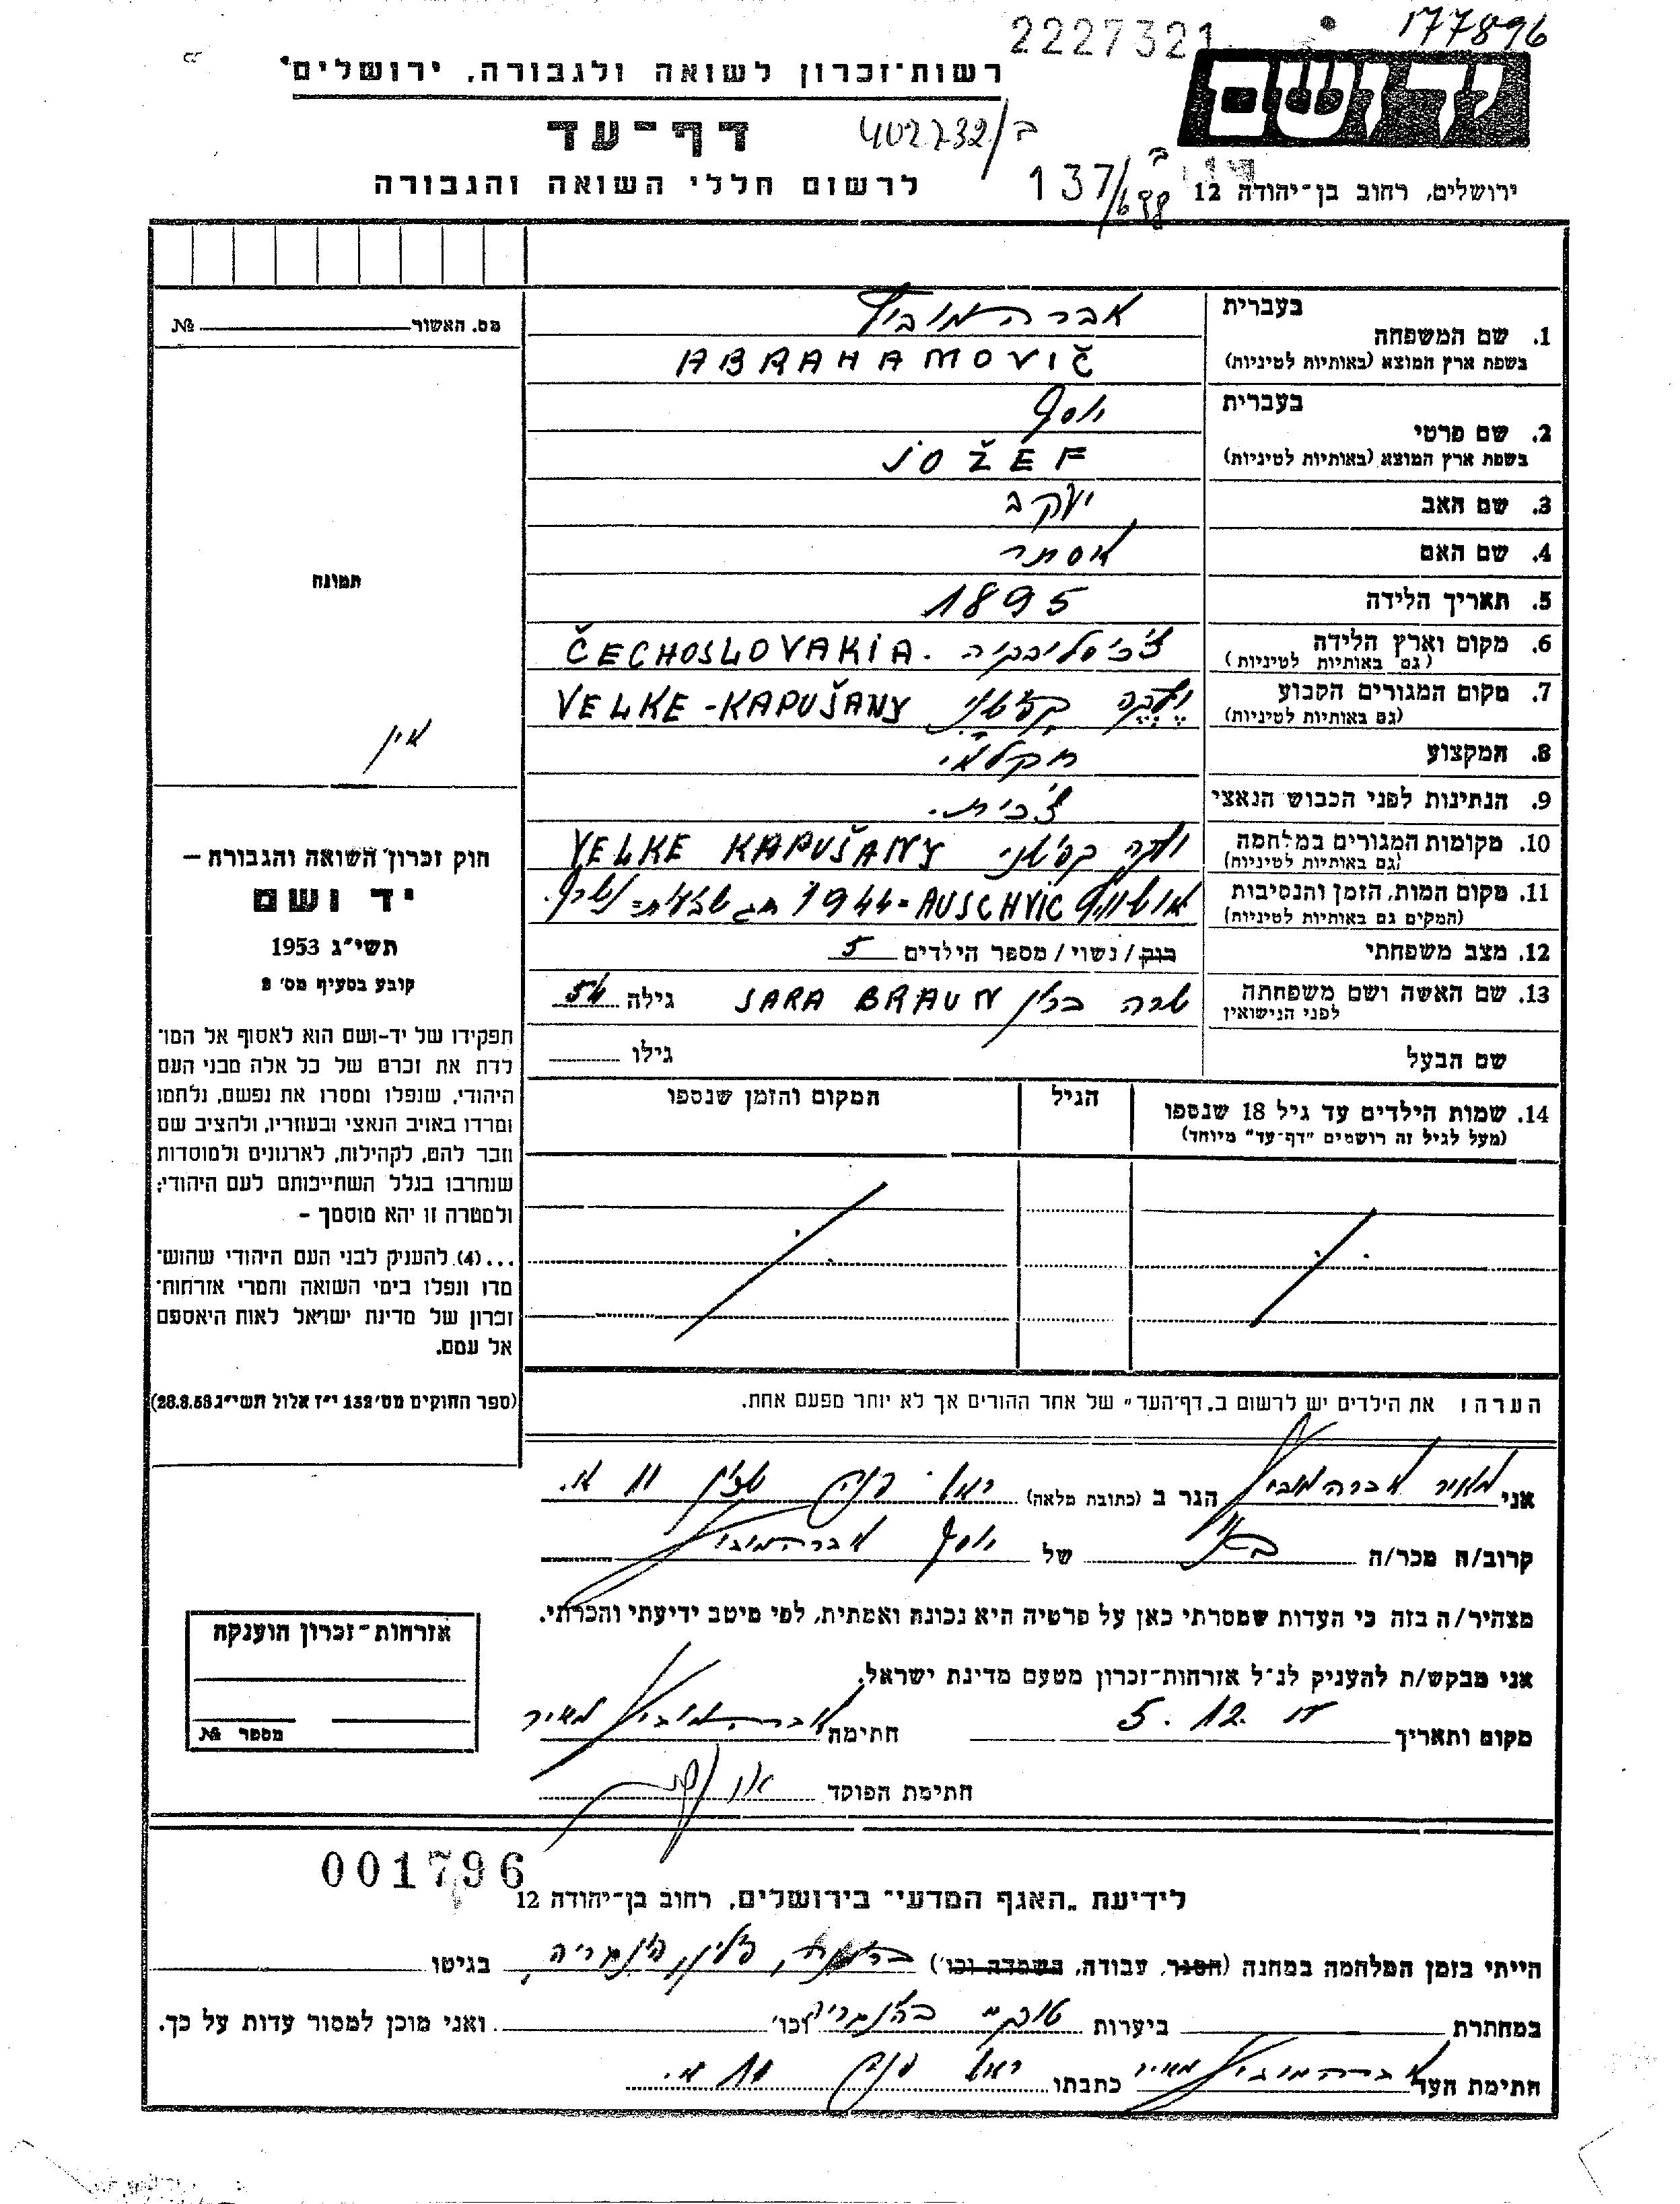 2227321
177896
רשות־זכרון לשואה ולגבורה, ירושלים
יד ושם
דף־עד
402732/ב
לרשום חללי השואה והגבורה
137/
ירושלים, רחוב בן־יהודה 12
מס. האשור № 
בעברית
1. שם המשפחה אברהמוביץ
בשפת ארץ המוצא (באותיות לטיניות) ABRAHAMOVIČ
בעברית יוסף
2. שם פרטי
בשפת ארץ המוצא (באותיות לטיניות) JOŽEF
3. שם האב יעקב
4. שם האם אסתר
5. תאריך הלידה 1895
6. מקום וארץ הלידה צ'כוסלובקיה. ČECHOSLOVAKIA
(גם באותיות לטיניות)
7. מקום המגורים הקבוע VELKE-KAPUŠANY
(גם באותיות לטיניות)
8. המקצוע חקלאי
9. הנתינות לפני הכבוש הנאצי צ'כית.
10. מקומות המגורים במלחמה VELKE KAPUŠANY
(גם באותיות לטיניות)
11. מקום המות, הזמן והנסיבות אושוויץ AUSCHVIC-1944 חג שבועות-נשרף.
(המקומים גם באותיות לטיניות)
12. מצב משפחתי רוק / נשוי / מספר הילדים 5
13. שם האשה ושם משפחתה שרה ברוין SARA BRAUN גילה 54
לפני הנישואין
שם הבעל גילו
14. שמות הילדים עד גיל 18 שנספו הגיל המקום והזמן שנספו
(מעל לגיל זה רושמים "דף־עד" מיוחד)
הערה: את הילדים יש לרשום ב„דף־העד" של אחד ההורים אך לא יותר מפעם אחת.
תמונה
אין
חוק זכרון השואה והגבורה –
יד ושם
תשי"ג 1953
קובע בסעיף מס' 2
תפקידו של יד-ושם הוא לאסוף אל המו־
לדת את זכרם של כל אלה מבני העם
היהודי, שנפלו ומסרו את נפשם, נלחמו
ומרדו באויב הנאצי ובעוזריו, ולהציב שם
וזכר להם, לקהילות, לארגונים ולמוסדות
שנחרבו בגלל השתייכותם לעם היהודי;
ולמטרה זו יהא מוסמך –
...(4) להעניק לבני העם היהודי שהוש־
מדו ונפלו בימי השואה והמרי אזרחות־
זכרון של מדינת ישראל לאות היאספם
אל עמם.
(ספר החוקים מס' 132 י"ז אלול תשי"ג 28.8.53)
אני מאיר אברהמוביץ הגר ב (כתובת מלאה) 11 א.
קרוב/ה מכר/ה של יוסף אברהמוביץ
מצהיר/ה בזה כי העדות שמסרתי כאן על פרטיה היא נכונה ואמתית, לפי מיטב ידיעתי והכרתי.
אני מבקש/ת להעניק לנ"ל אזרחות־זכרון מטעם מדינת ישראל.
מקום ותאריך 5. 12. חתימה אברהמוביץ מאיר
חתימת הפוקד
אזרחות־זכרון הוענקה
מספר №
001796
לידיעת „האגף המדעי" בירושלים, רחוב בן־יהודה 12
הייתי בזמן המלחמה במחנה (הסגר, עבודה, השמדה וכו') בגיטו
במחתרת ביערות וכו' ואני מוכן למסור עדות על כך.
חתימת העד אברהמוביץ מאיר כתבתו 11 א.